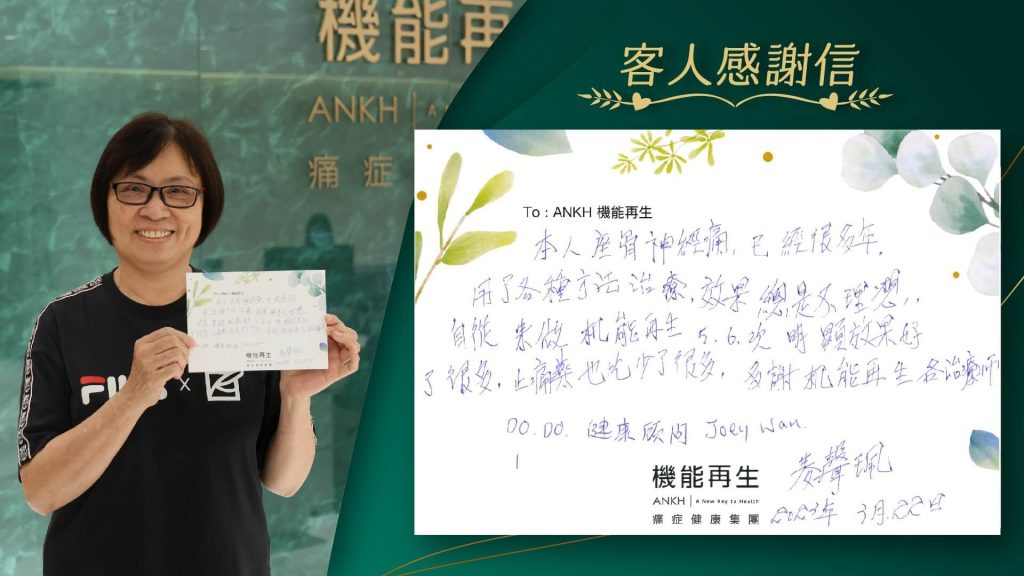 機能再
ANKH | A
痛症
FILA
客人感謝信
To : ANKH 機能再生
本人座骨神經痛,已經很多年,
用了各種方法治療,效果總是不理想,,
自從來做机能再生5.6.次明顯效果好
了很多,止痛藥也少了很多,多謝机能再生各治療師
DO.DO. 健康顾问 Joey Wan.
機能再生
ANKH | A New Key to Health
痛症健康集團
聲珮
2023年3月.22日